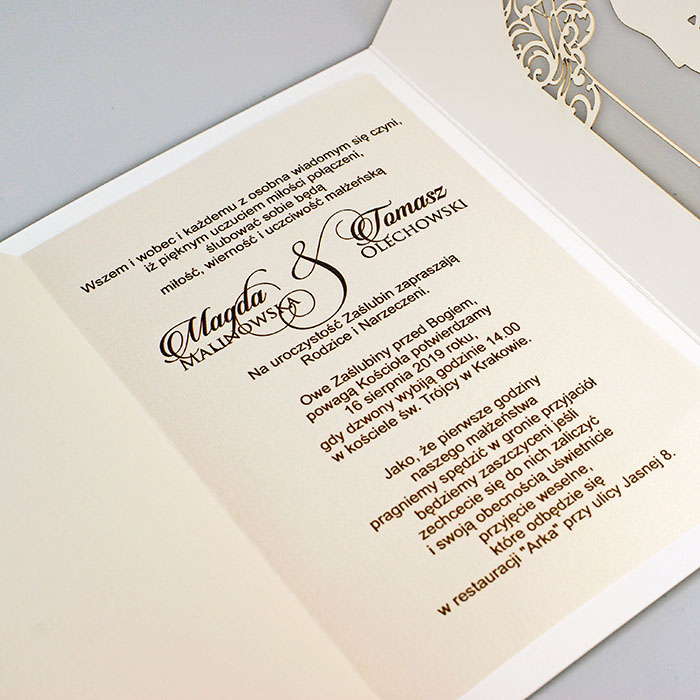 Wszem i wobec i każdemu z osobna wiadomym się czyni,
iż pięknym uczuciem miłości połączeni,
ślubować sobie będą
miłość, wierność i uczciwość małżeńską
Magda & Tomasz
MALINOWSKA OLECHOWSKI
Na uroczystość Zaślubin zapraszają
Rodzice i Narzeczeni.
Owe Zaślubiny przed Bogiem,
powagą Kościoła potwierdzamy
16 sierpnia 2019 roku,
gdy dzwony wybiją godzinie 14,00
w kościele św. Trójcy w Krakowie.
Jako, że pierwsze godziny
naszego małżeństwa
pragniemy spędzić w gronie przyjaciół
będziemy zaszczyceni jeśli
zechcecie się do nich zaliczyć
i swoją obecnością uświetnicie
przyjęcie weselne,
które odbędzie się
w restauracji "Arka" przy ulicy Jasnej 8.